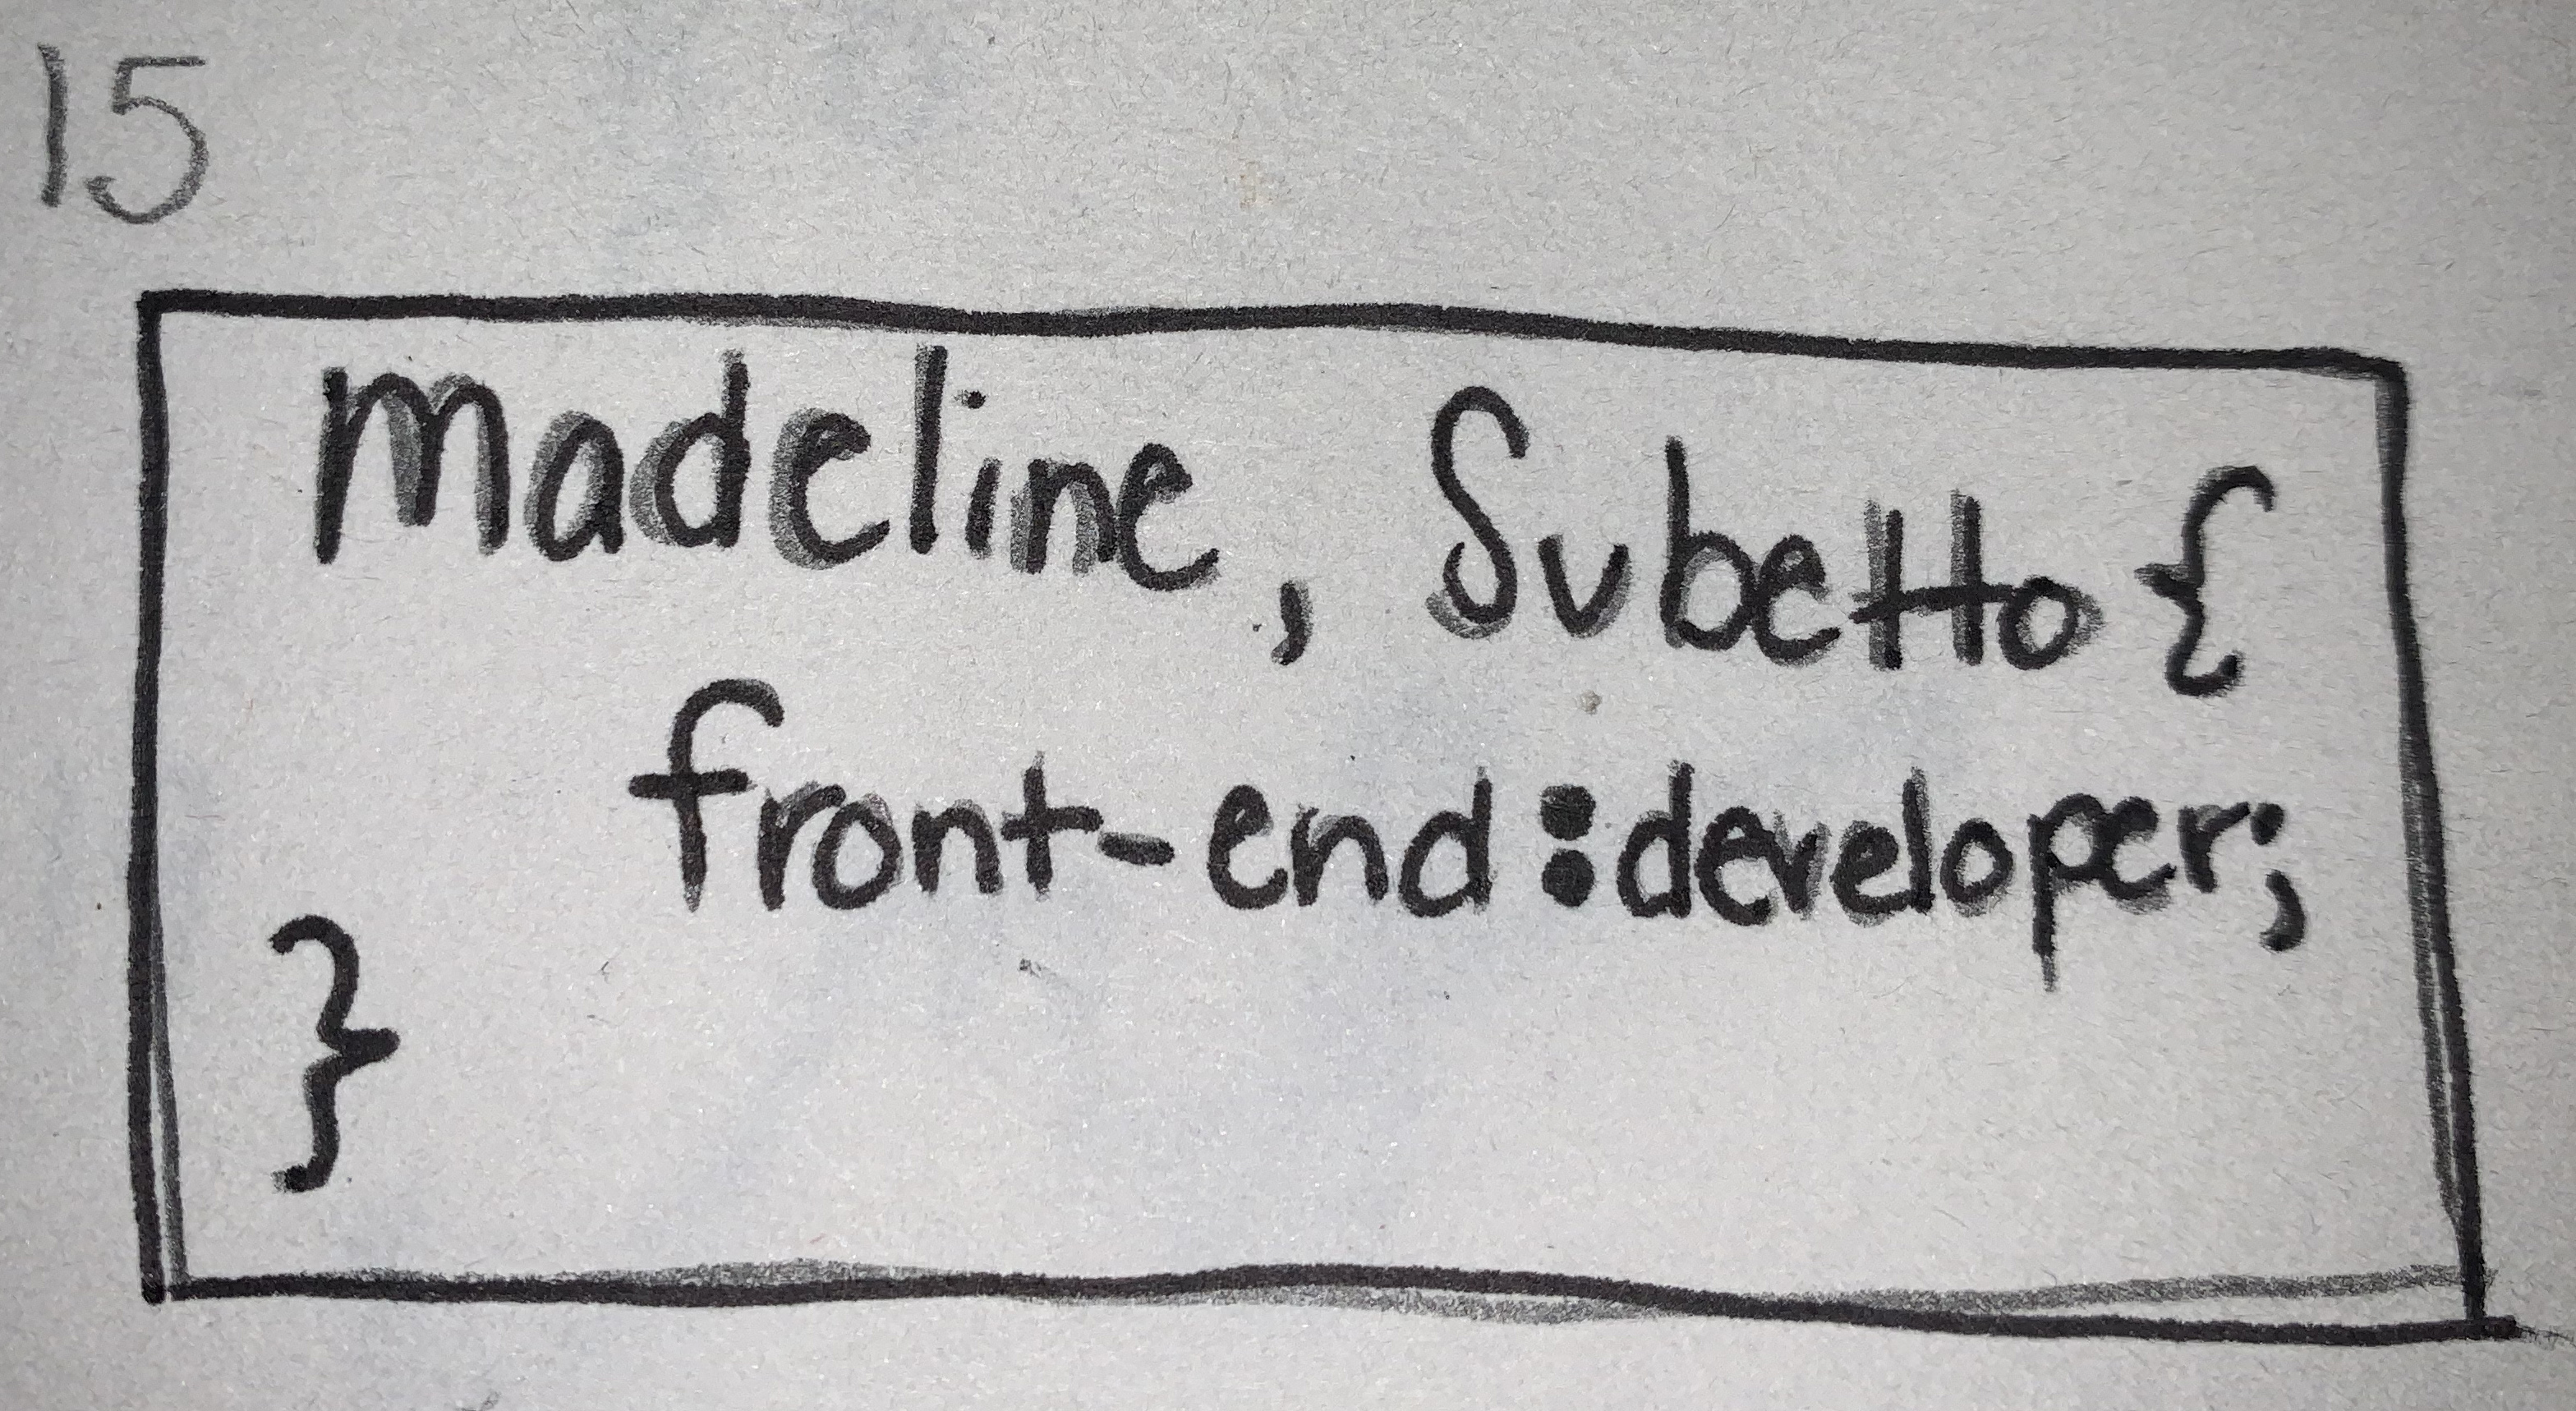 15
Madeline, Subetto {
front-end:developer;
}